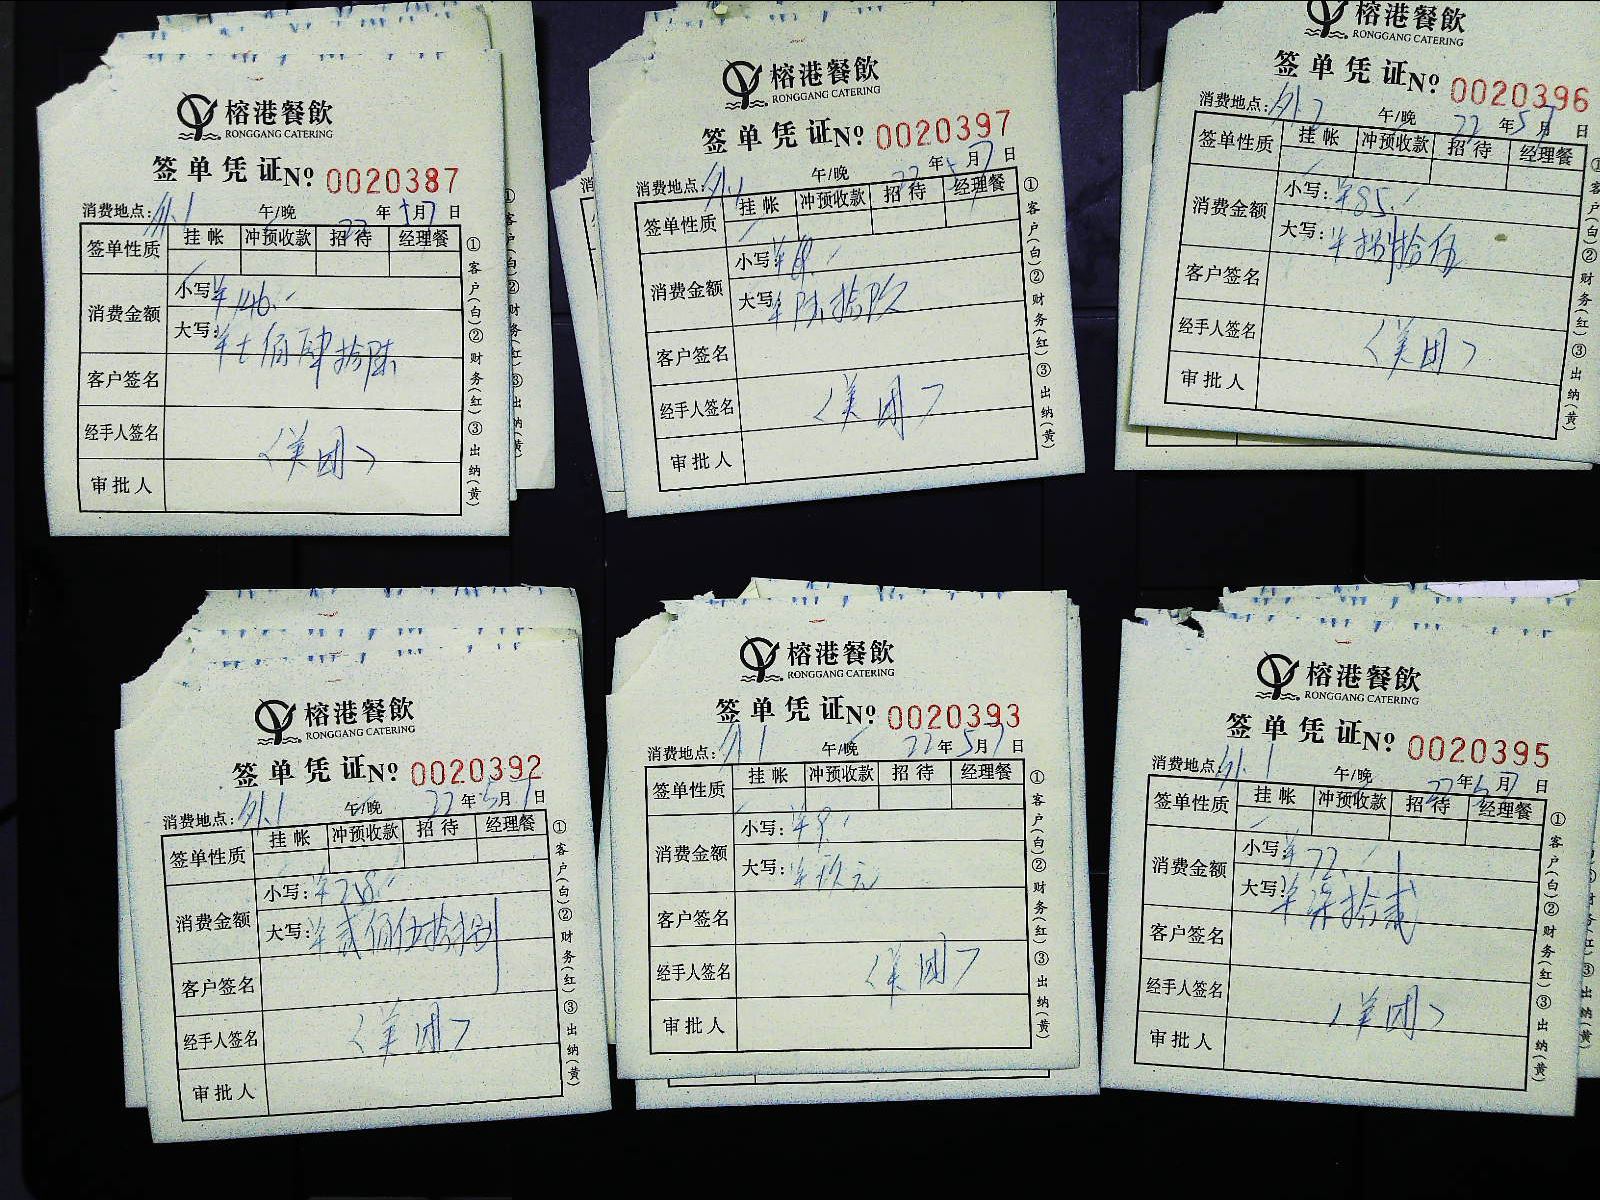 榕港餐飲
RONGGANG CATERING
签单凭证№ 0020387
消费地点：外1 午/晚 22年5月7日
签单性质 挂帐 冲预收款 招待 经理餐
消费金额 小写：¥146.
大写：
佰肆拾陆
客户签名
经手人签名 〈美团〉
审批人
①客户(白)②财务(红)③出纳(黄)
榕港餐飲
RONGGANG CATERING
签单凭证№ 0020397
消费地点：外1 午/晚 22年5月7日
签单性质 挂帐 冲预收款 招待 经理餐
消费金额 小写：
大写：¥陆拾玖
客户签名
经手人签名 〈美团〉
审批人
①客户(白)②财务(红)③出纳(黄)
榕港餐飲
RONGGANG CATERING
签单凭证№ 0020396
消费地点：外 午/晚 22年5月7日
签单性质 挂帐 冲预收款 招待 经理餐
消费金额 小写：¥85.
大写：¥捌拾伍
客户签名
经手人签名 〈美团〉
审批人
客户(白)②财务(红)③出纳(黄)
榕港餐飲
RONGGANG CATERING
签单凭证№ 0020392
消费地点：外1 午/晚 22年5月 日
签单性质 挂帐 冲预收款 招待 经理餐
消费金额 小写：¥258.
大写：¥贰佰伍拾捌
客户签名
经手人签名 〈美团〉
审批人
①客户(白)②财务(红)③出纳(黄)
榕港餐飲
RONGGANG CATERING
签单凭证№ 0020393
消费地点：外1 午/晚 22年5月7日
签单性质 挂帐 冲预收款 招待 经理餐
消费金额 小写：¥9.
大写：¥玖元
客户签名
经手人签名 〈美团〉
审批人
①客户(白)②财务(红)③出纳(黄)
榕港餐飲
RONGGANG CATERING
签单凭证№ 0020395
消费地点：外1 午/晚 22年5月7日
签单性质 挂帐 冲预收款 招待 经理餐
消费金额 小写：¥72.
大写：¥柒拾贰
客户签名
经手人签名 〈美团〉
审批人
①客户(白)②财务(红)③出纳(黄)